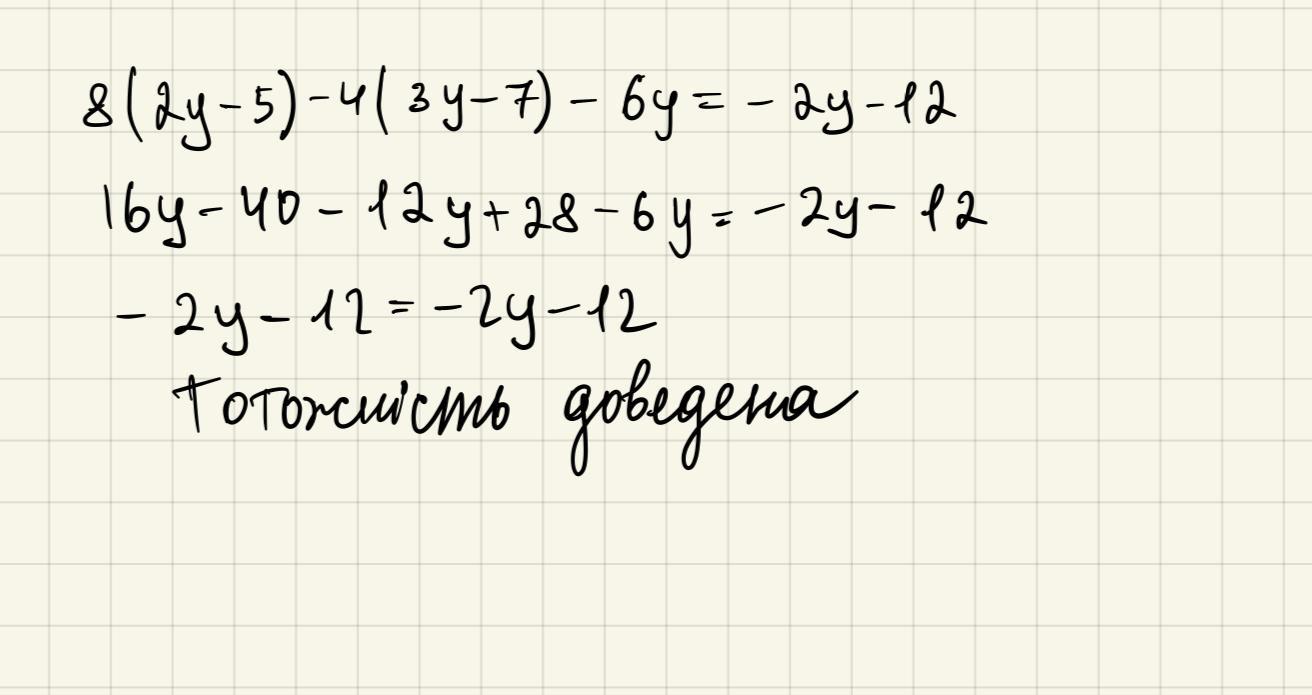 8(2y-5)-4(3y-7)-6y=-2y-12
16y-40-12y+28-6y=-2y-12
-2y-12=-2y-12
Тотожність доведена